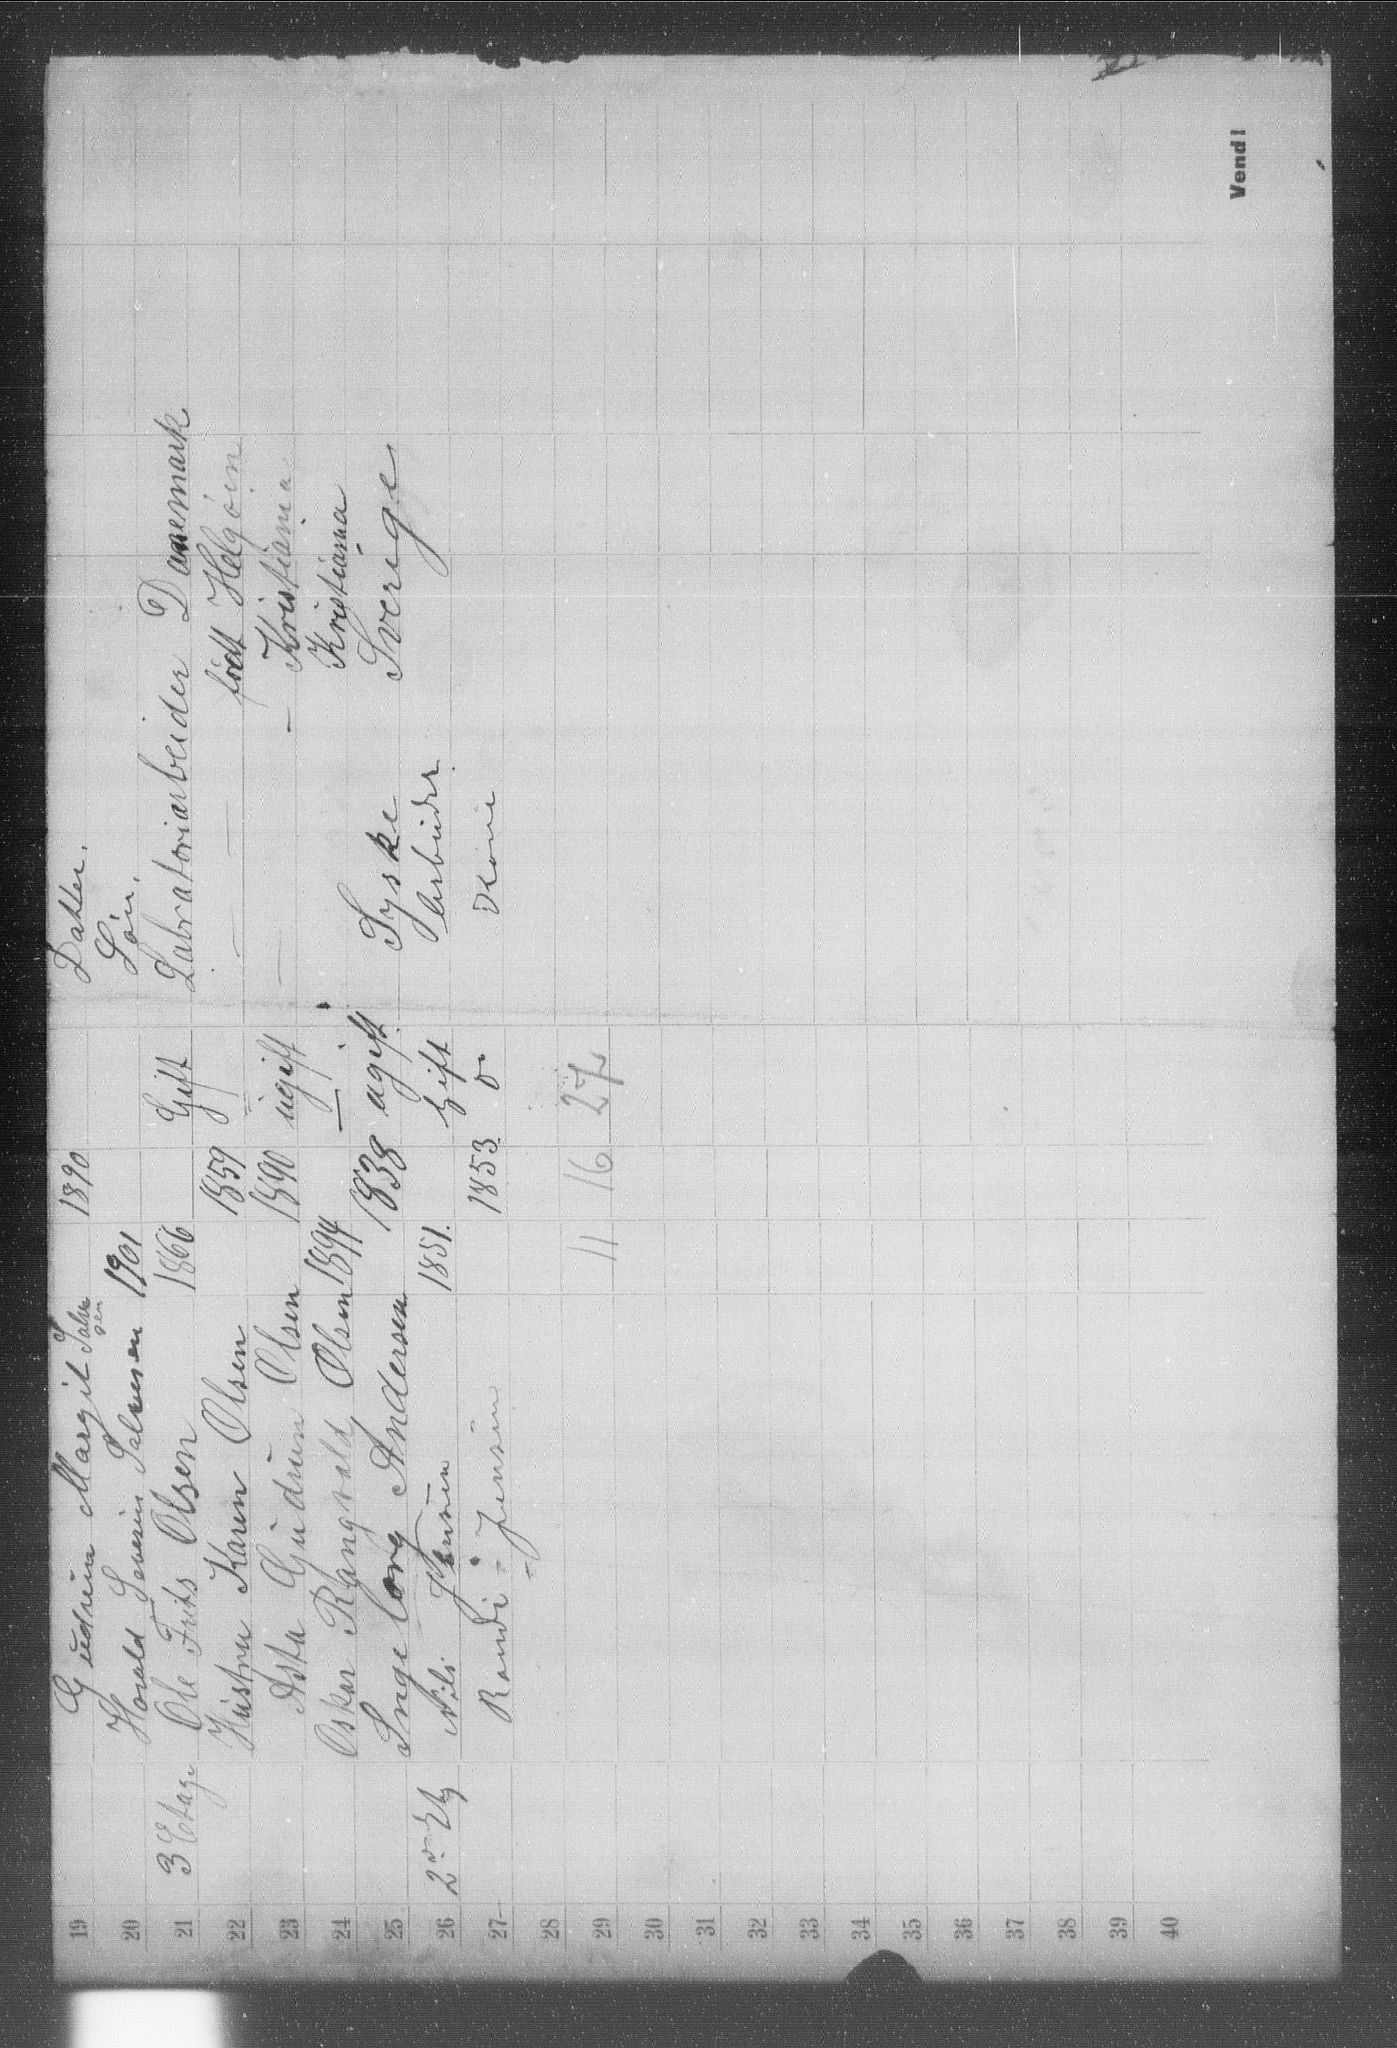 19 Gudrun Margit Salvesen 1890 Datter.
20 Harald Severin Salvesen 1901 Søn.
21 3 Etage Ole Frits Olsen 1866 Gift Labratoriarbeider Danemark
22 Hustru Karen Olsen 1859 " — — født Helgøin
23 Asta Gudrun Olsen 1890 ugift — — Kristiania
24 Oskar Rangvald Olsen 1894 — Kristiania
25 Ingeborg Andersen 1838 ugift Syske Sverige
26 2den Etg Nils Jensen 1851. Gift Arbeider
27 Randi Jensen 1853 do Kone
28
29 11 16 27
30
31
32
33
34
35
36
37
38
39
40
Vend!